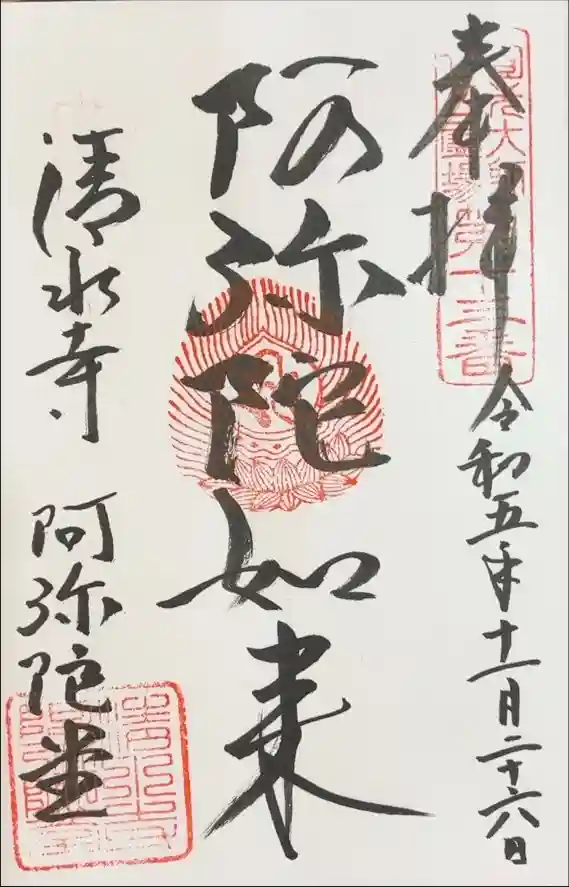 奉拝 令和五年十一月二十六日
圓光大師
霊場第十三番
阿弥陀如来
清水寺 阿弥陀堂